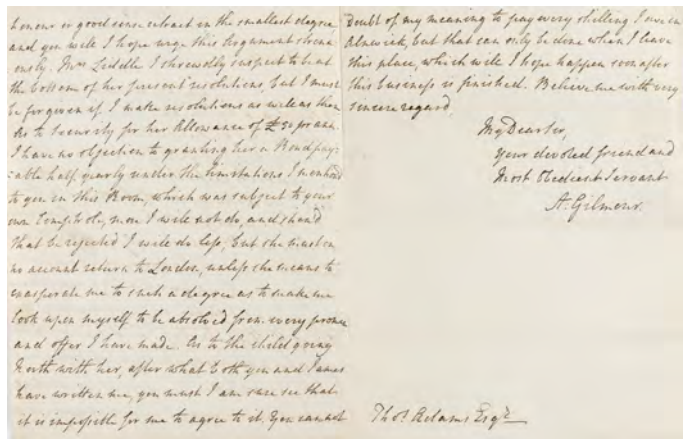 honour or good sense retract in the smallest degree
and you will I hope urge this Argument stren
uously. Mrs Liddell I shrewdly suspect to be at
the bottom of her present resolutions, but I must
be forgiven if I make resolutions as well as them
As to security for her Allowance of £50 pr ann.
I have no objection to granting her a Bond pay-
able half yearly under the limitations I mention'd
to you in this Room, which was subject to your
own Controle, more I will not do, and shou'd
that be rejected I will do less, but she must on
no account return to London, unless she means to
exasperate me to such a degree as to make me
look upon myself to be absolved from every promise
and offer I have made. As to the child going
North with her, after what both you and James
have written me, you must I am sure see that
it is impossible for me to agree to it. You cannot
Doubt of my meaning to pay every shilling I owe in
Alnwick, but that can only be done when I leave
this place, which will I hope happen soon after
this business is finished. Believe me with very
sincere regard,
My Dear Sir,
Your devoted friend and
Most Obedient Servant
A. Gilmour.
Thos. Adams Esqre